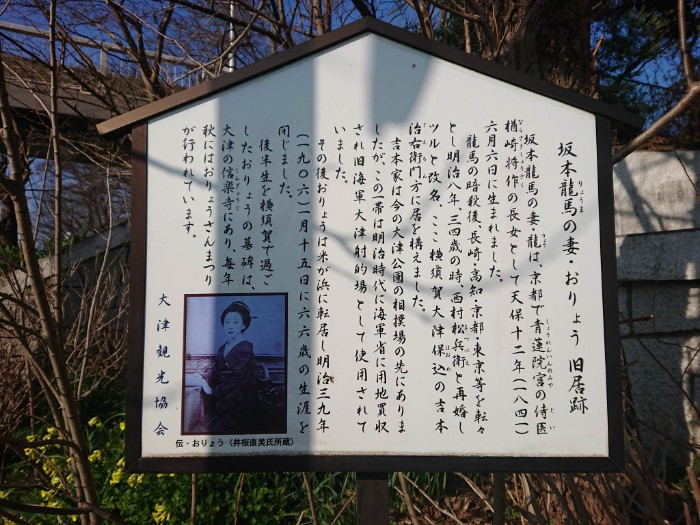 坂本龍馬の妻・おりょう 旧居跡
りょうま
坂本龍馬の妻・龍は、京都で青蓮院宮の侍医
りょう
しょうれんいんのみや
じい
楢崎将作の長女として天保十二年（一八四一）
ならさきしょうさく
六月六日に生まれました。
龍馬の暗殺後、長崎・高知・京都・東京等を転々
とし明治八年、三四歳の時、西村松兵衛と再婚し
ツルと改名、ここ横須賀大津保込の吉本
治右衛門方に居を構えました。
吉本家は今の大津公園の相撲場の先にありま
したが、この一帯は明治時代に海軍省に用地買収
され旧海軍大津射的場として使用されて
いました。
その後おりょうは米が浜に転居し明治三九年
（一九〇六）一月十五日に六六歳の生涯を
閉じました。
後半生を横須賀で過ご
したおりょうの墓碑は、
大津の信楽寺にあり、毎年
秋にはおりょうさんまつり
が行われています。
大津観光協会
伝・おりょう（井桜直美氏所蔵）